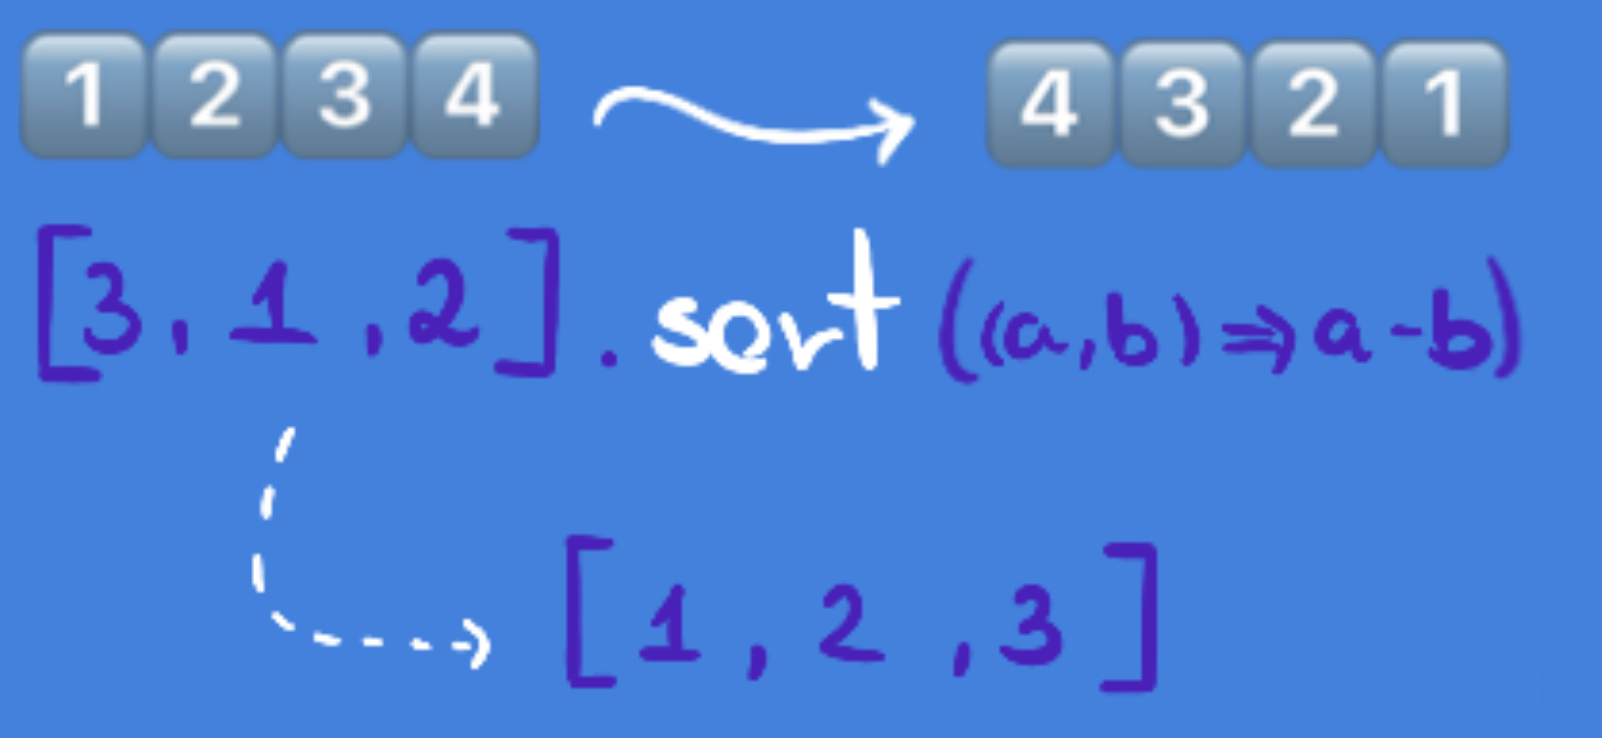 1 2 3 4 4 3 2 1
[3, 1, 2].sort((a,b)⇒a-b)
[1, 2, 3]